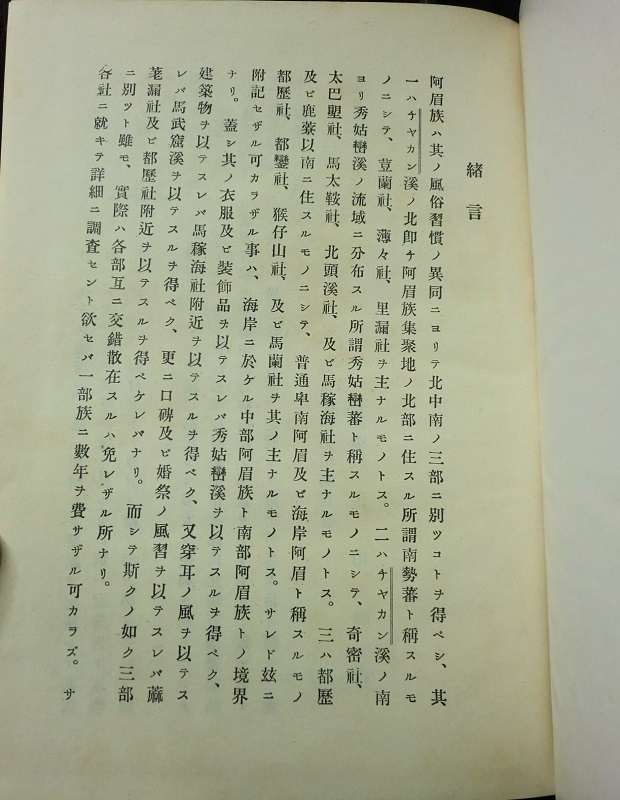 緒言
阿眉族ハ其ノ風俗習慣ノ異同ニヨリテ北中南ノ三部ニ別ツコトヲ得ベシ、其
一ハチヤカン溪ノ北卽チ阿眉族集聚地ノ北部ニ住スル所謂南勢蕃ト稱スルモ
ノニシテ、荳蘭社、薄々社、里漏社ヲ主ナルモノトス。二ハチヤカン溪ノ南
ヨリ秀姑巒溪ノ流域ニ分布スル所謂秀姑巒蕃ト稱スルモノニシテ、奇密社、
太巴塱社、馬太鞍社、北頭溪社、及ビ馬稼海社ヲ主ナルモノトス。三ハ都歷
及ビ鹿藔以南ニ住スルモノニシテ、普通卑南阿眉及ビ海岸阿眉ト稱スルモノ
都歷社、都鑾社、猴仔山社、及ビ馬蘭社ヲ其ノ主ナルモノトス。サレド玆ニ
附記セザル可カラザル事ハ、海岸ニ於ケル中部阿眉族ト南部阿眉族トノ境界
ナリ。蓋シ其ノ衣服及ビ裝飾品ヲ以テスレバ秀姑巒溪ヲ以テスルヲ得ベク、
建築物ヲ以テスレバ馬稼海社附近ヲ以テスルヲ得ベク、又穿耳ノ風ヲ以テス
レバ馬武窟溪ヲ以テスルヲ得ベク、更ニ口碑及ビ婚祭ノ風習ヲ以テスレバ蔴
荖漏社及ビ都歷社附近ヲ以テスルヲ得ベケレバナリ。而シテ斯クノ如ク三部
ニ別ツト雖モ、實際ハ各部互ニ交錯散在スルハ免レザル所ナリ。
各社ニ就キテ詳細ニ調査セント欲セバ一部族ニ數年ヲ費サザル可カラズ。サ